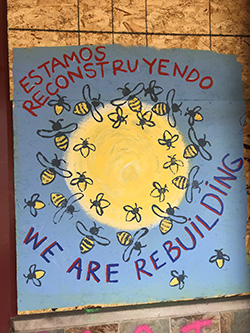 ESTAMOS
RECONSTRUYENDO
WE ARE REBUILDING